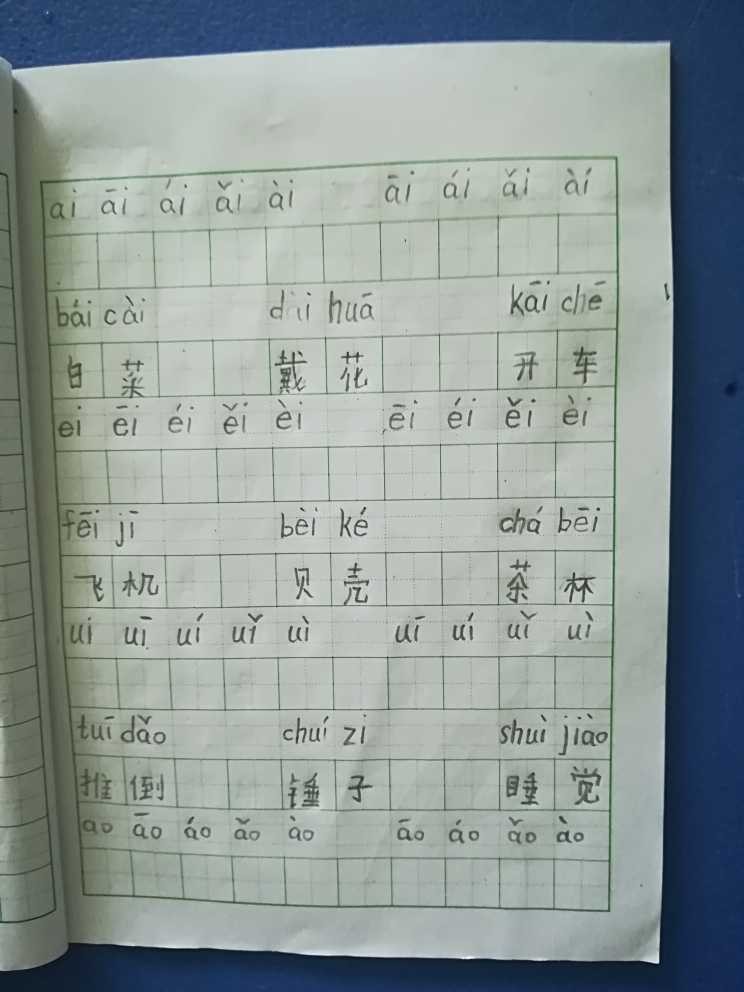 ai āi ái ǎi ài āi ái ǎi ài
bái cài dài huā kāi chē
白菜 戴花 开车
ei ēi éi ěi èi ēi éi ěi èi
fēi jī bèi ké chá bēi
飞机 贝壳 茶杯
ui uī uí uǐ uì uī uí uǐ uì
tuī dǎo chuí zi shuì jiào
推倒 锤子 睡觉
ao āo áo ǎo ào āo áo ǎo ào